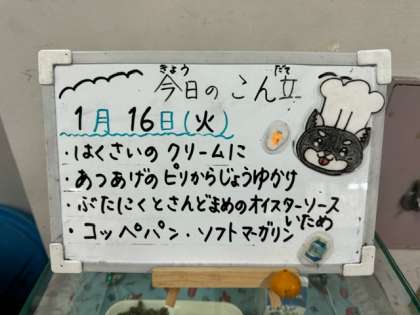 今日のこん立
きょう だて
1月 16日(火)
・はくさいの クリームに
・あつあげのピリからじょうゆかけ
・ぶたにくとさんどまめのオイスターソース
いため
・コッペパン・ソフトマーガリン